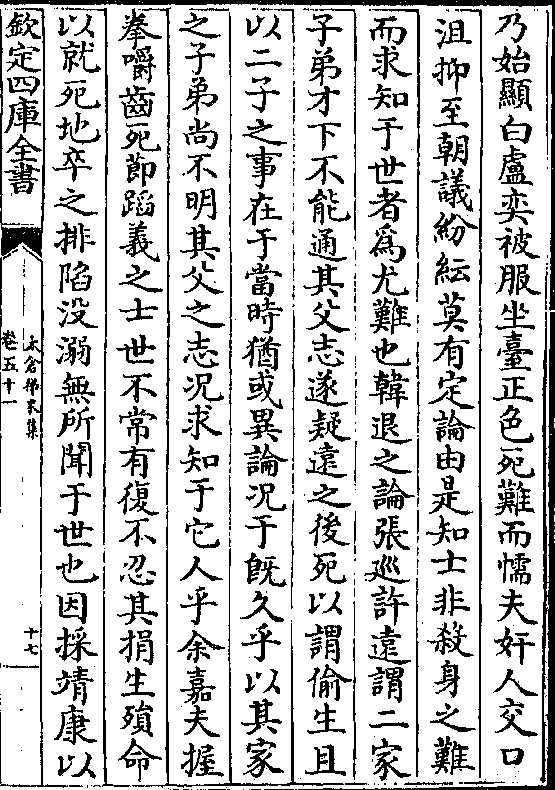 乃始顯白盧奕被服坐臺正色死難而懦夫奸人交口
沮抑至朝議紛紜莫有定論由是知士非殺身之難
而求知于世者爲尤難也韓退之論張廵許逺謂二家
子弟才下不能通其父志遂疑逺之後死以謂偷生且
以二子之事在于當時猶或異論况于旣久乎以其家
之子弟尚不明其父之志况求知于它人乎余嘉夫握
拳嚼齒死節蹈義之士世不常有復不忍其捐生殞命
以就死地卒之排陷没溺無所聞于世也因採靖康以
欽定四庫全書
太倉稊米集
卷五十一
十七